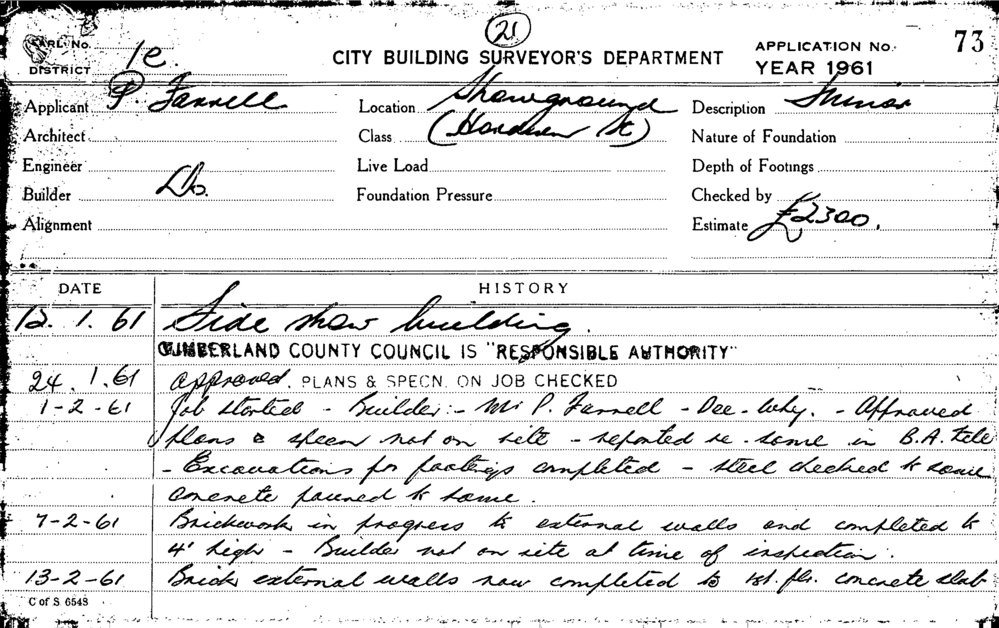 21
PARL. No.
DISTRICT 1e.
CITY BUILDING SURVEYOR'S DEPARTMENT
APPLICATION No. 73
YEAR 1961
Applicant P. Farrell
Location Showground
Description Minor
Architect
Class
Nature of Foundation
Engineer
Live Load
Depth of Footings
Builder Do.
Foundation Pressure
Checked by
Alignment
Estimate £2300.
DATE HISTORY
12. 1. 61 Side show building.
CUMBERLAND COUNTY COUNCIL IS "RESPONSIBLE AUTHORITY"
24. 1. 61 Approved. PLANS & SPECN. ON JOB CHECKED
1-2-61 Job started - Builder:- Mr P. Farrell - Dee-Why. - Approved
plans & specn not on site - reported re. same in B.A. file
- Excavations for footings completed - steel checked & same
concrete poured to same.
7-2-61 Brickwork in progress to external walls and completed to
4' high - Builder not on site at time of inspection.
13-2-61 Brick external walls now completed to 1st. flr. concrete slab
C of S 6548